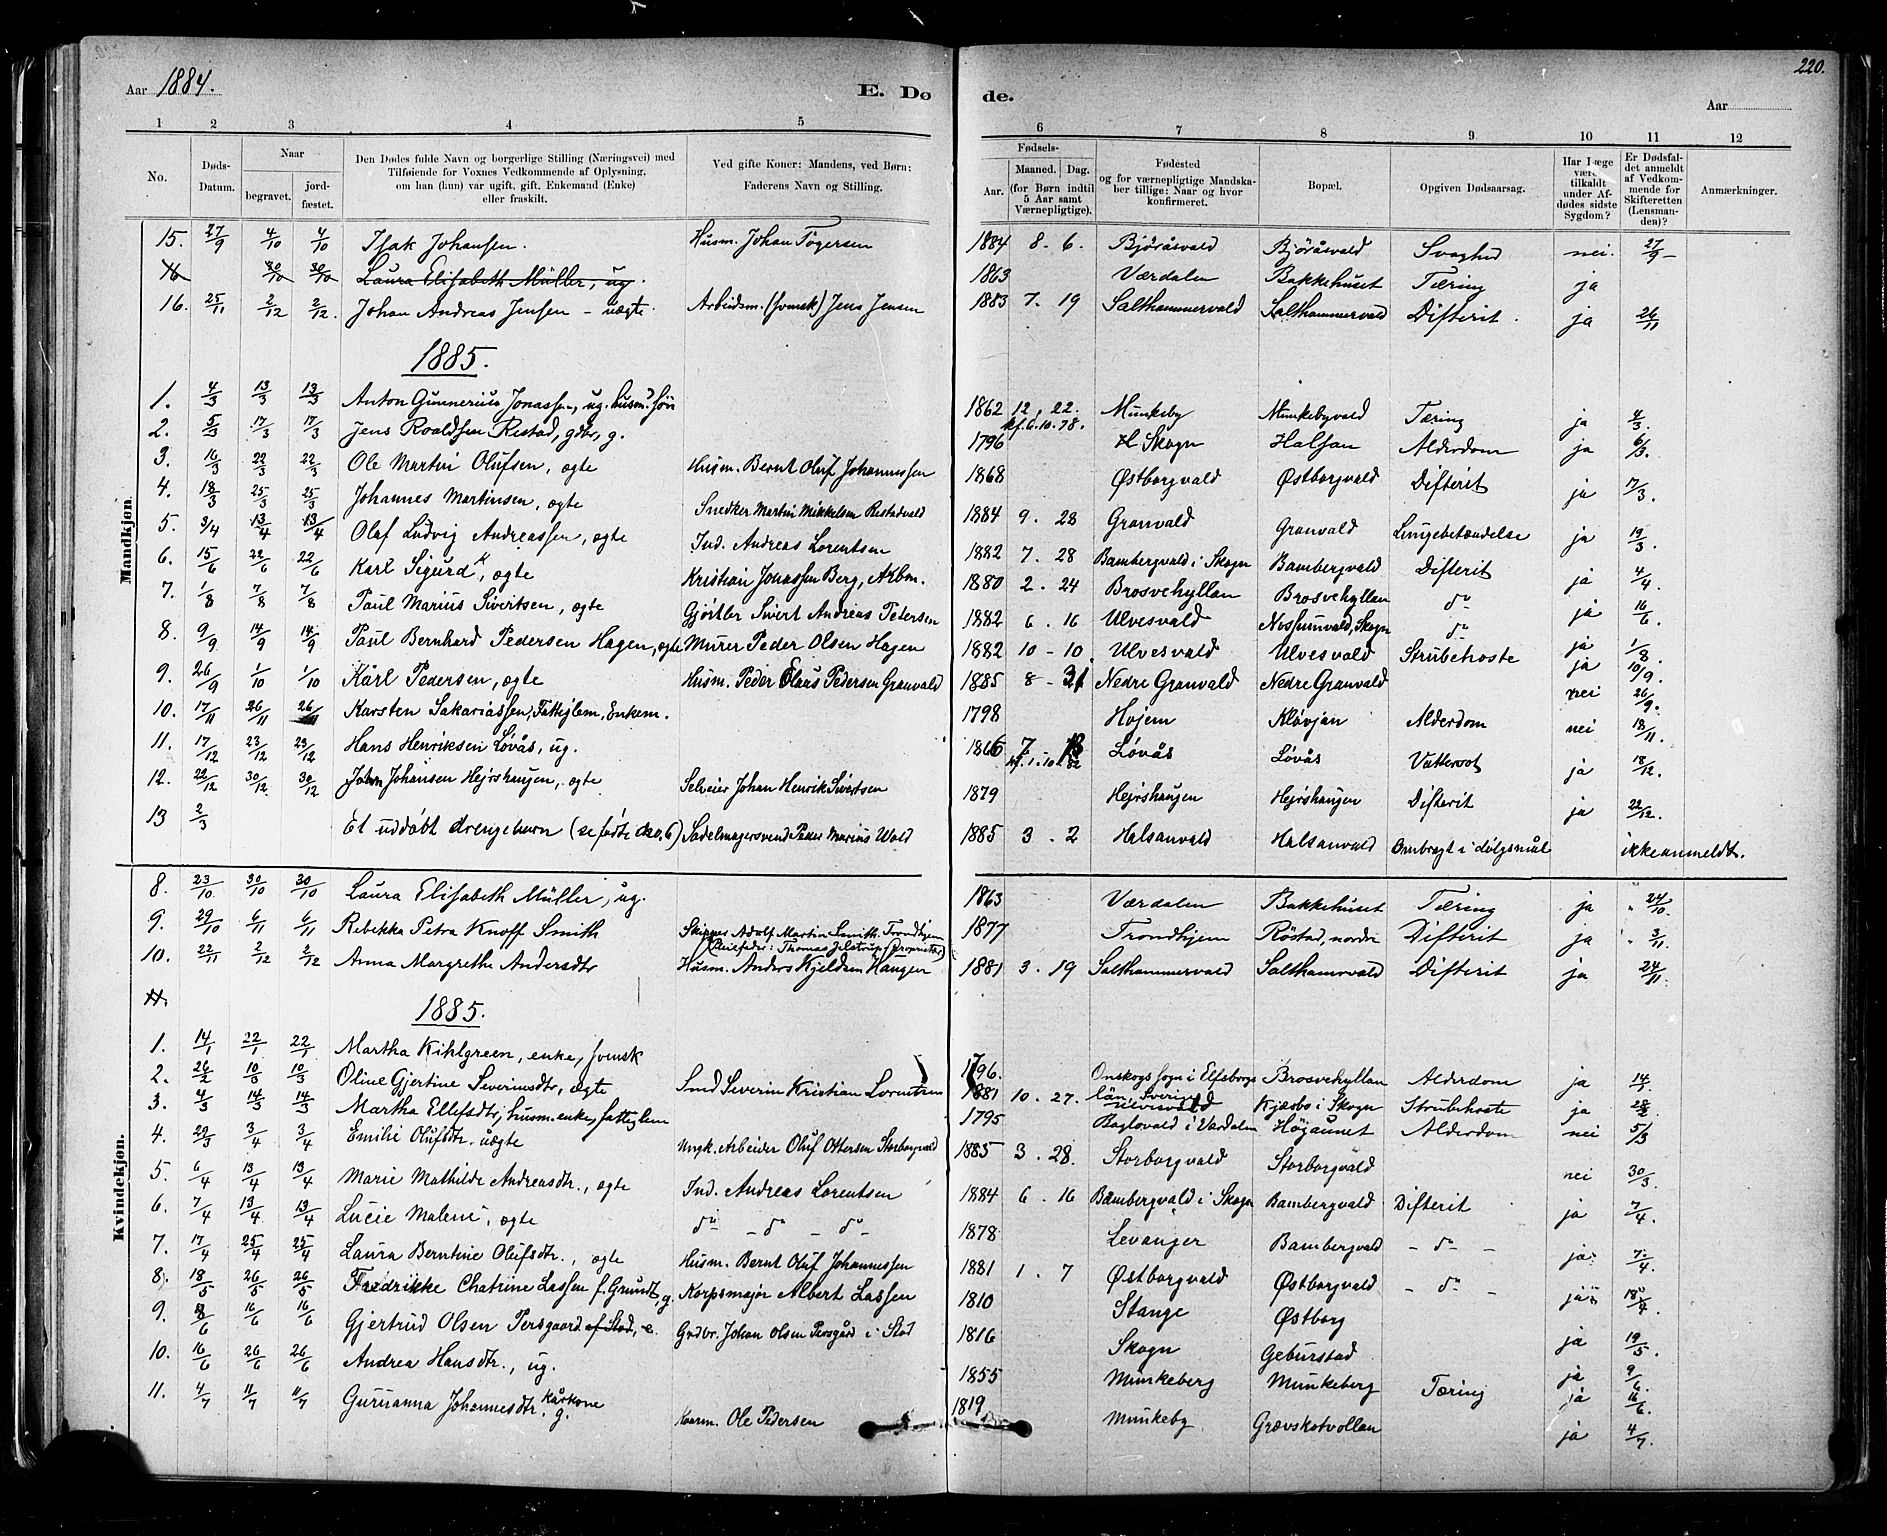 220.
Aar 1884.
E. Dø
de.
Aar
1 2 3 4 5 6 7 8 9 10 11 12
No.
Døds-Datum.
Naar
begravet.
jord-fæstet.
Den Dødes fulde Navn og borgerlige Stilling (Næringsvei) med
Tilføiende for Voxnes Vedkommende af Oplysning,
om han (hun) var ugift, gift, Enkemand (Enke)
eller fraskilt.
Ved gifte Koner: Mandens, ved Børn:
Faderens Navn og Stilling.
Fødsels-
Aar.
Maaned. Dag.
(for Børn indtil
5 Aar samt
Værnepligtige).
Fødested
og for værnepligtige Mandska-
ber tillige: Naar og hvor
konfirmeret.
Bopæl.
Opgiven Dødsaarsag.
Har Læge
været
tilkaldt
under Af-
dødes sidste
Sygdom?
Er Dødsfal-
det anmeldt
af Vedkom-
mende for
Skifteretten
(Lensman-
den)?
Anmærkninger.
Mandkjøn.
15. 27/9 4/10 4/10 Isak Johansen. Husm. Johan Togersen 1884 8. 6. Bjøråsvald Bjøråsvald Svaghed nei. 27/9
16 30/10 30/10 Laura Elisabeth Müller, ug. 1863 Værdalen Bakkehuset Tæring ja
16. 25/11 2/12 2/12. Johan Andreas Jensen - uægte. Arbeidsm. (svensk) Jens Jensen 1883 7. 19 Salthammervald Salthammervald Difterit. ja 26/11
1885.
1. 4/3 13/3 13/3 Anton Gunnerius Jonassen, ug. husm. søn 1862 12, 22. kf. 6. 10. 78. Munkeby Munkebyvald Tæring ja 4/3.
2. 5/3 17/3 17/3 Jens Roaldsen Restad, gdbr, g. 1796 Skogn Halsan Alderdom ja 6/3.
3. 16/3 22/3 22/3 Ole Martin Olufsen, ægte Husm. Bernt Oluf Johannessen 1868 Østborgvald Østborgvald Difterit ja 17/3.
4. 18/3 25/3 25/3 Johannes Martinsen, ægte Snedker Martin Mikkelsen Restadvald 1884 9. 28 Granvald Granvald Lungebetændelse ja 19/3.
5. 3/4 13/4 13/4 Olaf Ludvig Andreassen, ægte Ind. Andreas Lorentsen 1882 7. 28 Bambergvald i Skogn Bambergvald Difterit ja 4/4
6. 15/6 22/6 22/6 Karl Sigurd, ægte Kristian Jonassen Berg, Arbm. 1880 2. 24 Brosvehyllan Brosvehyllan do ja 16/6.
7. 1/8 7/8 7/8 Paul Marius Sivertsen, ægte Gjørtler Sivert Andreas Pedersen 1882 6. 16 Ulvesvald Nossumvald, Skogn do ja 1/8.
8. 9/9 14/9 14/9 Paul Bernhard Pedersen Hagen, ægte Murer Peder Olsen Hagen 1882 10 - 10. Ulvesvald Ulvesvald Strubehoste ja 10/9.
9. 26/9 1/10 1/10 Karl Pedersen, ægte Husm. Peder Claus Pedersen Granvald 1885 8 - 31 Nedre Granvald Nedre Granvald nei 26/9.
10. 17/11 26/11 26/11 Karsten Sakariassen, Fattiglem, Enkem. 1798 Hojem Kløvjan Alderdom nei 18/11.
11. 17/12 23/12 23/12 Hans Henriksen Løvås, ug. 1866 7 13 kf. 1. 10. 82 Løvås Løvås Vattersot ja 18/12.
12. 22/12 30/12 30/12 John Johansen Hejrshaugen, ægte Selveier Johan Henrik Sivertsen 1879 Hejrshaugen Hejrshaugen Difterit ja 22/12.
13 2/3 Et uddøbt drengebarn (se fødte No. 6) Sadelmagersvend Peder Marius Wold 1885 3. 2 Halsanvald Halsanvald Ombragt i dølgsmål ikke anmeldt.
Kvindekjøn.
8. 23/10 30/10 30/10 Laura Elisabeth Müller, ug. 1863 Værdalen Bakkehuset Tæring ja 24/10.
9. 29/10 6/11 6/11 Rebekka Petra Knoff Smith Skipper Adolf Martin Smith. Trondhjem (Pleiefader: Thomas Jelstrup, Proprietær) 1877 Trondhjem Røstad, nordre Difterit ja 3/11.
10. 22/11 2/12 2/12 Anna Margrethe Andersdtr Husm. Anders Kjeldsen Haugen 1881 3. 19 Salthammervald Salthamrvald Difterit ja 24/11.
11.
1885.
1. 14/1 22/1 22/1 Martha Kihlgreen, enke, svensk 1796. Onskogs sogn i Elfsborgs län, Sverige Brosvehyllan Alderdom ja 14/1.
2. 26/2 10/3 10/3 Oline Gjertine Severinsdtr, ægte Smd Severin Kristian Lorentsen 1881 10. 27. Ulvesvald Kjæsbo i Skogn Strubehoste ja 28/2.
3. 4/3 14/3 14/3 Martha Ellefsdtr, husm.enke, fattiglem 1795 Baglovald i Værdalen Høgaunet Alderdom nei 5/3
4. 29/3 3/4 3/4 Emilie Olufsdtr. uægte Ungk. Arbeider Oluf Ottersen Storborgvald 1885 3. 28. Storborgvald Storborgvald nei 30/3
5. 6/4 13/4 13/4 Marie Mathilde Andreasdtr., ægte Ind. Andreas Lorentsen 1884 6. 16 Bambergvald i Skogn Bambergvald Difterit ja 7/4.
6. 7/4 13/4 13/4 Lucie Malene, ægte do - do - do 1878 Levanger Bambergvald - do - ja 7/4.
7. 17/4 25/4 25/4 Laura Berntine Olufsdtr., ægte Husm. Bernt Oluf Johannessen 1881 1. 7 Østborgvald Østborgvald - do - ja 18/4.
8. 18/5 26/5 26/5 Fredrikke Chatrine Lassen f. Grundt, g. Korpsmajor Albert Lassen 1810 Stange Østborg ja 19/5.
9. 8/6 16/6 16/6 Gjertrud Olsen Persgaard af Stod, e. Grdbr. Johan Olsen Persgård i Stod 1816 Skogn Geburstad ja 9/6.
10. 16/6 26/6 26/6 Andrea Hansdtr., ug. 1855 Munkeberg Munkeberg Tæring ja 16/6.
11. 4/7 11/7 11/7 Gurianna Johannesdtr. kårkone g. Kaarm. Ole Pedersen 1819 Munkeby Grævskotvollan ja 4/7.